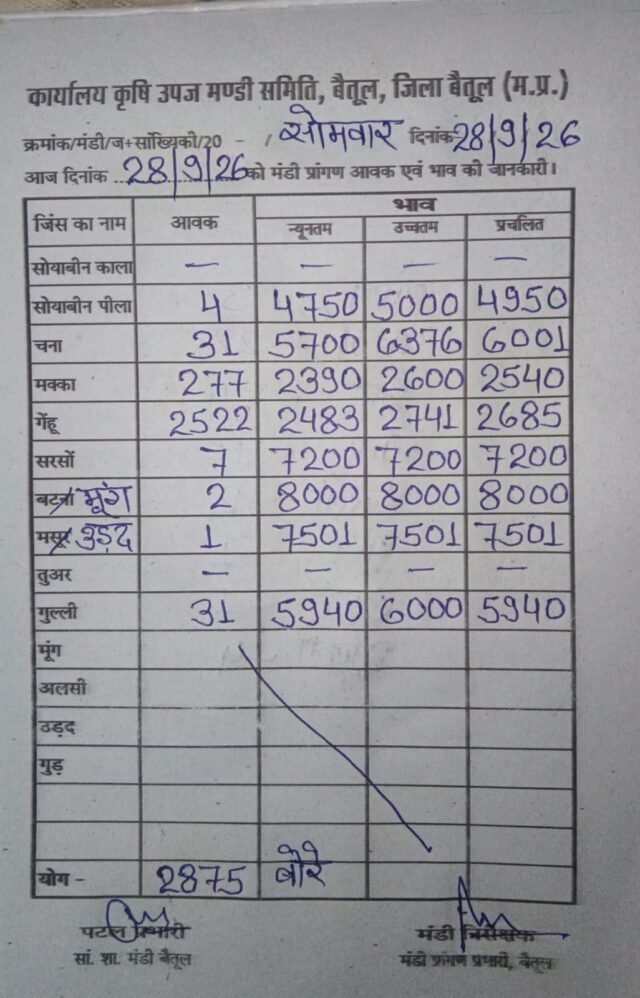 कार्यालय कृषि उपज मण्डी समिति, बैतूल, जिला बैतूल (म.प्र.)
क्रमांक/मंडी/ज+सांख्यिकी/20 - / सोमवार दिनांक 28/9/26
आज दिनांक ..28/9/26 को मंडी प्रांगण आवक एवं भाव की जानकारी।
जिंस का नाम आवक भाव
न्यूनतम उच्चतम प्रचलित
सोयाबीन काला — — — —
सोयाबीन पीला 4 4750 5000 4950
चना 31 5700 6376 6001
मक्का 277 2390 2600 2540
गेंहू 2522 2483 2741 2685
सरसों 7 7200 7200 7200
बटरा मूंग 2 8000 8000 8000
मसूर उड़द 1 7501 7501 7501
तुअर — — — —
गुल्ली 31 5940 6000 5940
मूंग
अलसी
उड़द
गुड़
योग - 2875 बोरे
पटल प्रभारी मंडी निरीक्षक
सां. शा. मंडी बैतूल मंडी प्रांगण प्रभारी, बैतूल